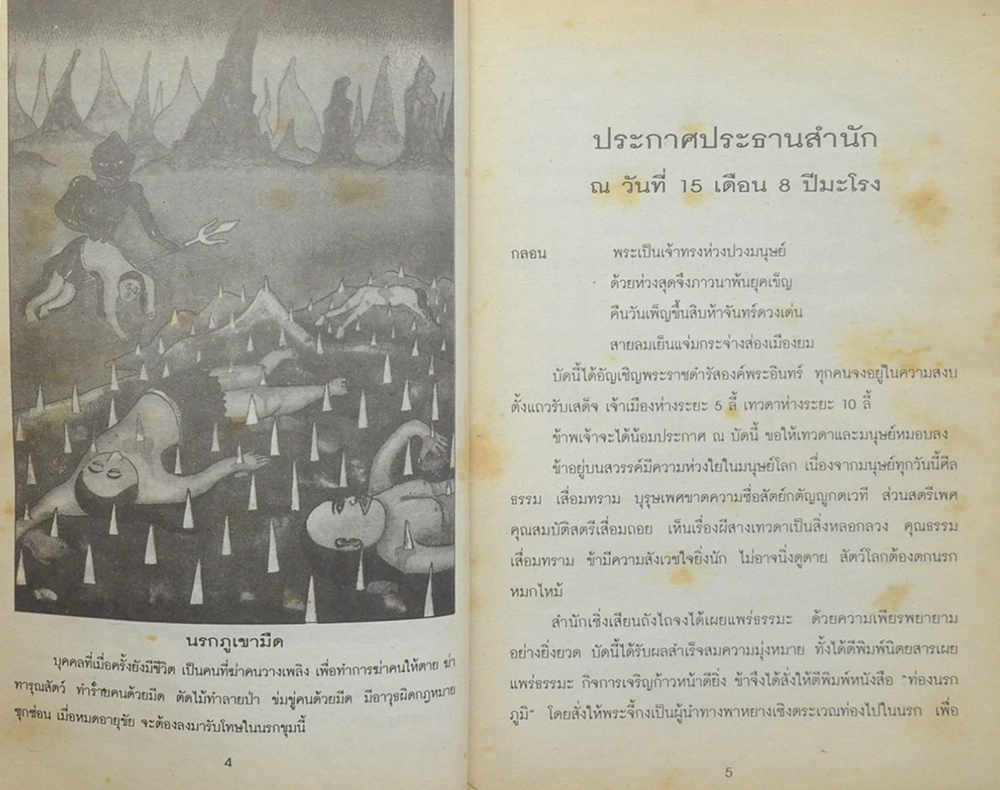 นรกภูเขามีด
บุคคลที่เมื่อครั้งยังมีชีวิต เป็นคนที่ฆ่าคนวางเพลิง เพื่อทำการฆ่าคนให้ตาย ฆ่า
ทารุณสัตว์ ทำร้ายคนด้วยมีด ตัดไม้ทำลายป่า ข่มขู่คนด้วยมีด มีอาวุธผิดกฎหมาย
ซุกซ่อน เมื่อหมดอายุขัย จะต้องลงมารับโทษในนรกขุมนี้
4
ประกาศประธานสำนัก
ณ วันที่ 15 เดือน 8 ปีมะโรง
กลอน พระเป็นเจ้าทรงห่วงปวงมนุษย์
ด้วยห่วงสุดจึงภาวนาพ้นยุคเข็ญ
คืนวันเพ็ญขึ้นสิบห้าจันทร์ดวงเด่น
สายลมเย็นแจ่มกระจ่างส่องเมืองยม
บัดนี้ได้อัญเชิญพระราชดำรัสองค์พระอินทร์ ทุกคนจงอยู่ในความสงบ
ตั้งแถวรับเสด็จ เจ้าเมืองห่างระยะ 5 ลี้ เทวดาห่างระยะ 10 ลี้
ข้าพเจ้าจะได้น้อมประกาศ ณ บัดนี้ ขอให้เทวดาและมนุษย์หมอบลง
ข้าอยู่บนสวรรค์มีความห่วงใยในมนุษย์โลก เนื่องจากมนุษย์ทุกวันนี้ศีล
ธรรม เสื่อมทราม บุรุษเพศขาดความซื่อสัตย์กตัญญูกตเวที ส่วนสตรีเพศ
คุณสมบัติสตรีเสื่อมถอย เห็นเรื่องผีสางเทวดาเป็นสิ่งหลอกลวง คุณธรรม
เสื่อมทราม ข้ามีความสังเวชใจยิ่งนัก ไม่อาจนิ่งดูดาย สัตว์โลกต้องตกนรก
หมกไหม้
สำนักเซิ่งเสียนถังไถจงได้เผยแพร่ธรรมะ ด้วยความเพียรพยายาม
อย่างยิ่งยวด บัดนี้ได้รับผลสำเร็จสมความมุ่งหมาย ทั้งได้ตีพิมพ์นิตยสารเผย
แพร่ธรรมะ กิจการเจริญก้าวหน้าดียิ่ง ข้าจึงได้สั่งให้ตีพิมพ์หนังสือ "ท่องนรก
ภูมิ" โดยสั่งให้พระจี้กงเป็นผู้นำทางพาหยางเซิงตระเวณท่องไปในนรก เพื่อ
5